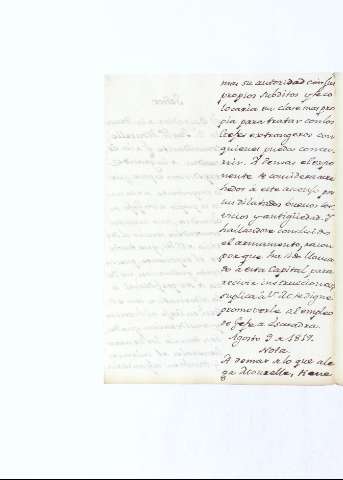 mas su autoridad con sus
propios subditos y le co
locaria en clase mas pro
pia para tratar con los
Gefes extrangeros con
quienes pueda concu
rrir. A demas el expo
nente se considera acre
hedor à este ascenso por
sus dilatados buenos ser
vicios y antigüedad. Y
hallandose concluido
el armamento,
por que ha sido llama
do à esta Capital para
recivir instrucciones
suplica à V. M. se digne
promoverle al empleo
de Gefe de Escuadra.
Agosto 9 de 1819.
Nota
A demas de lo que ale
ga Mourelle, tiene